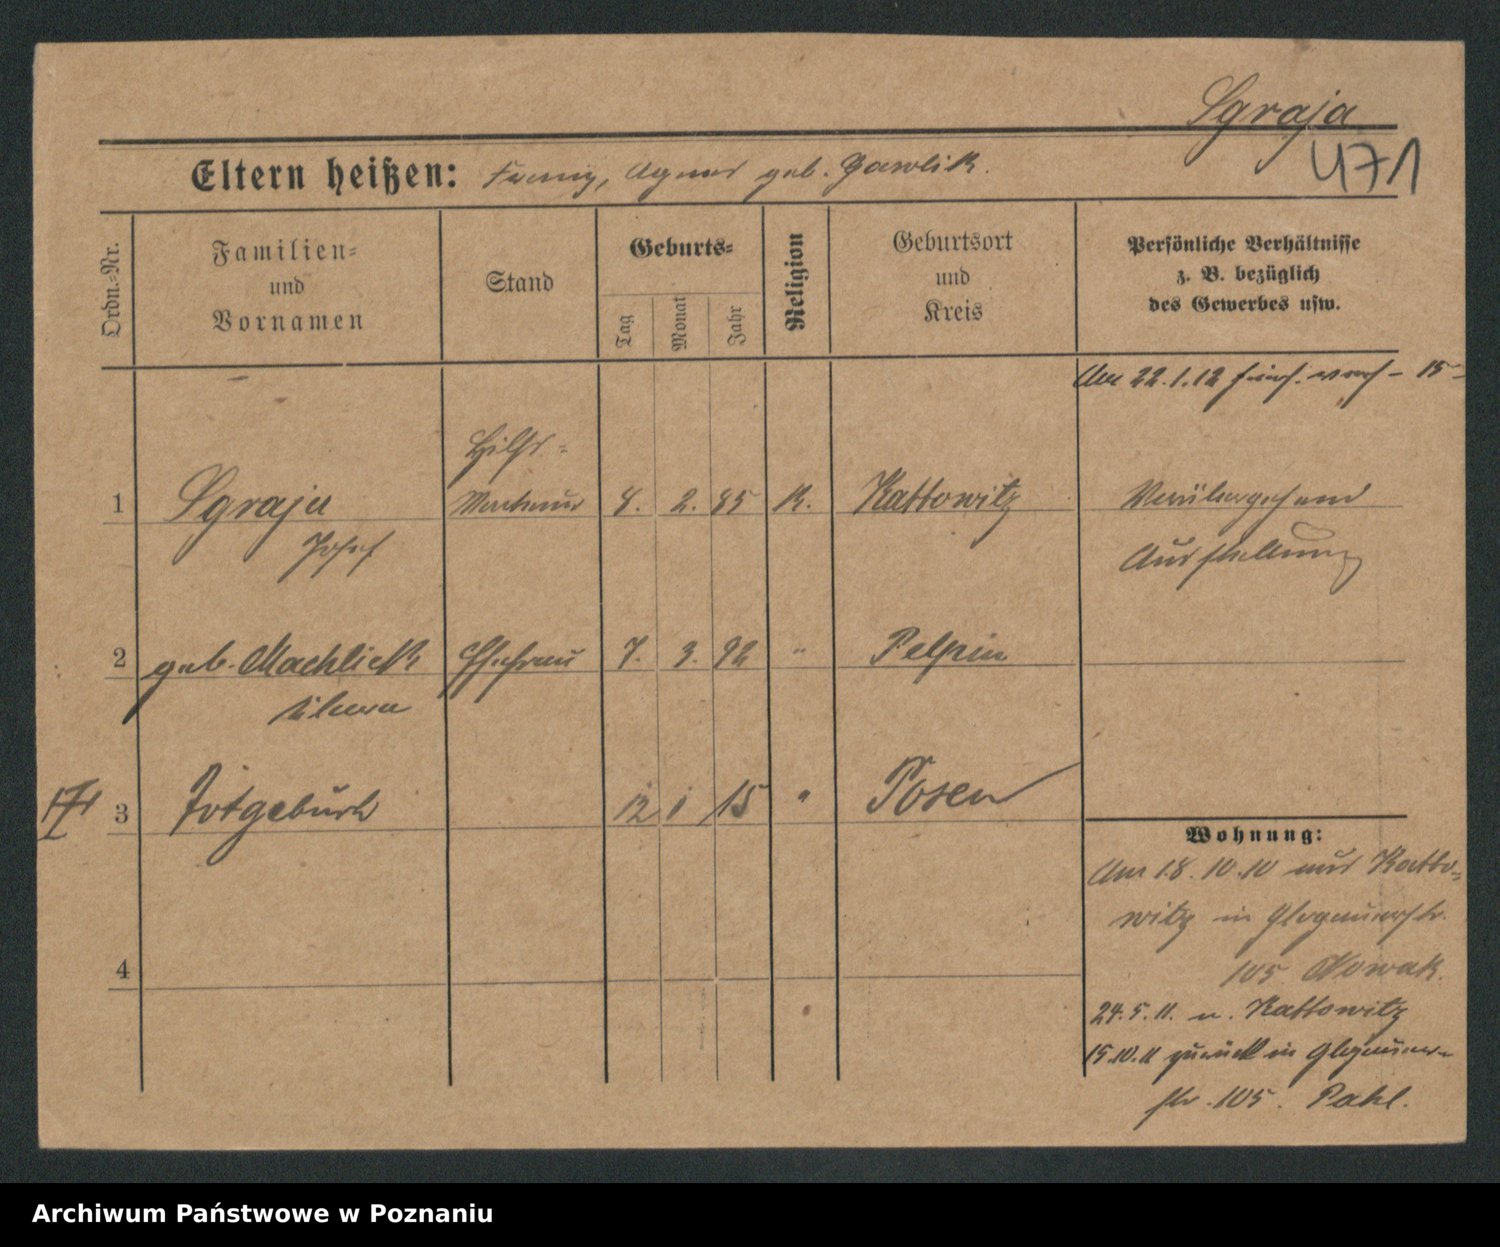 Sgraja
471
Eltern heißen: Franz, Agnes geb. Gawlik.
Ordn.-Nr.
Familien-
und
Vornamen
Stand
Geburts-
Tag
Monat
Jahr
Religion
Geburtsort
und
Kreis
Persönliche Verhältnisse
z. B. bezüglich
des Gewerbes usw.
Am 22.1.12 15
Hilfs-
1 Sgraja 8. 2. 85 K. Kattowitz Vorübergehend
Josef Ausstellung
2 geb. Machlick Ehefrau 7. 3. 92 " Pelplin
3 Totgeburt 12 1 15 " Posen
Wohnung:
Am 18.10.10 aus Katto-
witz in Glogauerstr.
105 Nowak.
4
24.5.11. n. Kattowitz
15.10.11 zurück in Glogauer-
str. 105. Pahl.
Archiwum Państwowe w Poznaniu